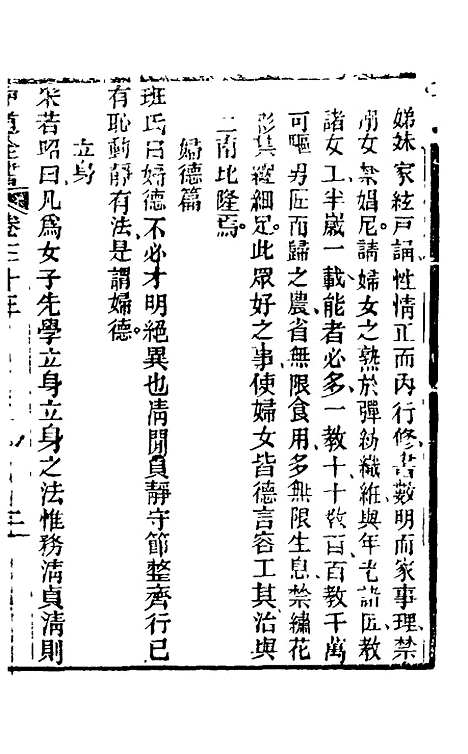 姊妹家絃戸誦性情正而內行修書數明而家事理禁
諸女工半歲一載能者必多一教十十教百百教千萬
可驅男匠而歸之農省無限食用多無限生息禁繡花
此眾好之事使婦女皆德言容工其治與
二南比隆焉
婦德篇
班氏曰婦德不必才明絕異也清閒貞靜守節整齊行已
有恥動靜有法是謂婦德
立身
宋若昭曰凡爲女子先學立身立身之法惟務清貞清則
全書 卷二十